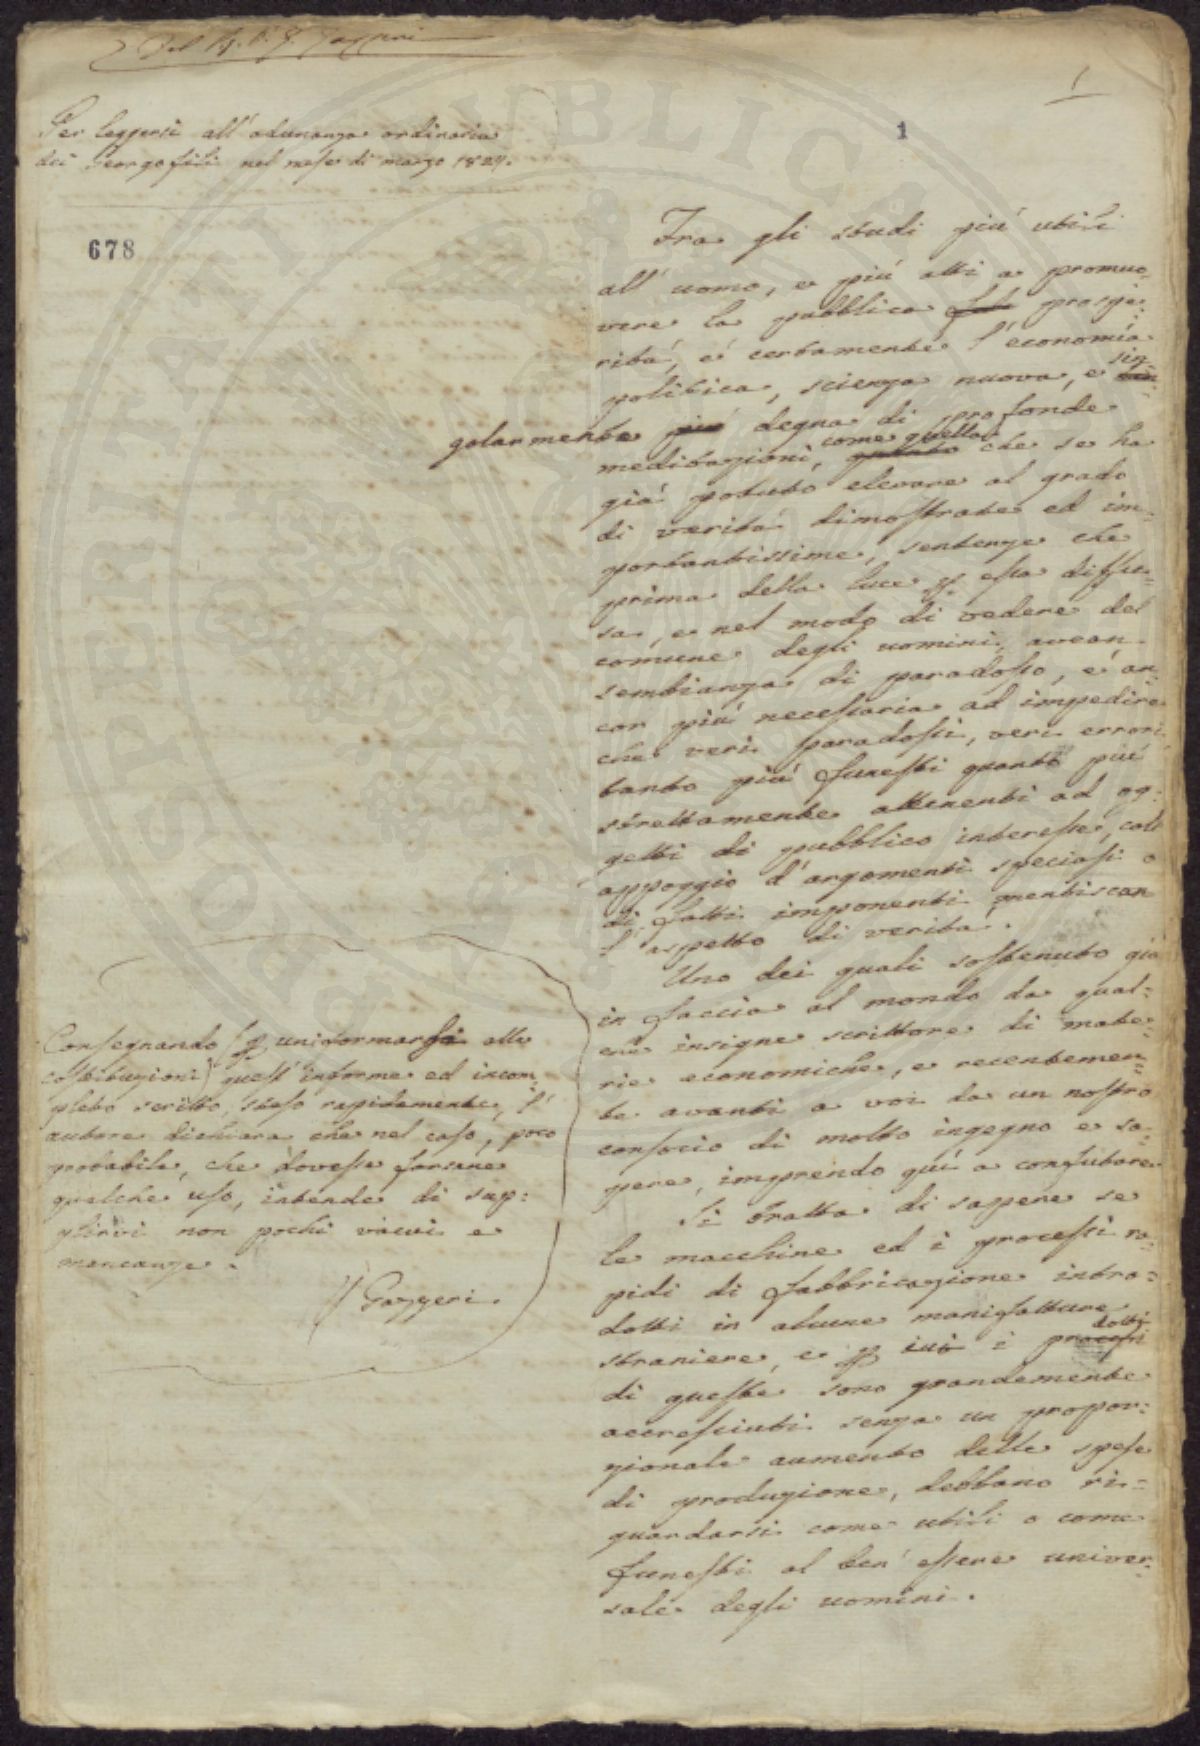 Del
Per leggersi all'adunanza ordinaria
dei Georgofili nel mese di marzo 1824.
1
1
678
Fra gli studi piú utili
all'uomo, e piú atti a promuo-
vere la pubblica prospe-
ritá, é certamente l'economía
politica, scienza nuova, e sin-
golarmente piú degna di profonde
meditazioni, come quella che se ha
giá potuto elevare al grado
di veritá dimostrate ed im-
portantissime, sentenze che
prima della luce p essa diffu-
sa, e nel modo di vedere del
comune degli uomini, avean
sembianza di paradosso, é an-
cor piú necessaria ad impedire
che veri paradossi, veri errori
tanto piú funesti quanto piú
strettamente attenenti ad og-
getti di pubblico interesse, coll'
appoggio d'argomenti speciosi o
di fatti imponenti mentiscan
l'aspetto di veritá.
Uno dei quali sostenuto giá
in faccia al mondo da qual-
che insigne scrittore di mate-
rie economiche, e recentemen-
te avanti a voi da un nostro
consocio di molto ingegno e sa-
pere, imprendo quí a confutare.
Si tratta di sapere se
le macchine ed i processi ra-
pidi di fabbricazione intro-
dotti in alcune manifatture
straniere, e p cui i prodotti
di queste sono grandemente
accresciuti senza un propor-
zionale aumento delle spese
di produzione, debbano ri-
guardarsi come utili o come
funesti al ben'essere univer-
sale degli uomini.
Consegnando (p uniformarsi alle
costituzioni) quest'informe ed incom-
pleto scritto, steso rapidamente, l'
autore dichiara che nel caso, poco
probabile, che dovesse farsene
qualche uso, intende di sup-
plirvi non pochi vacui e
mancanze.
Gazzeri.